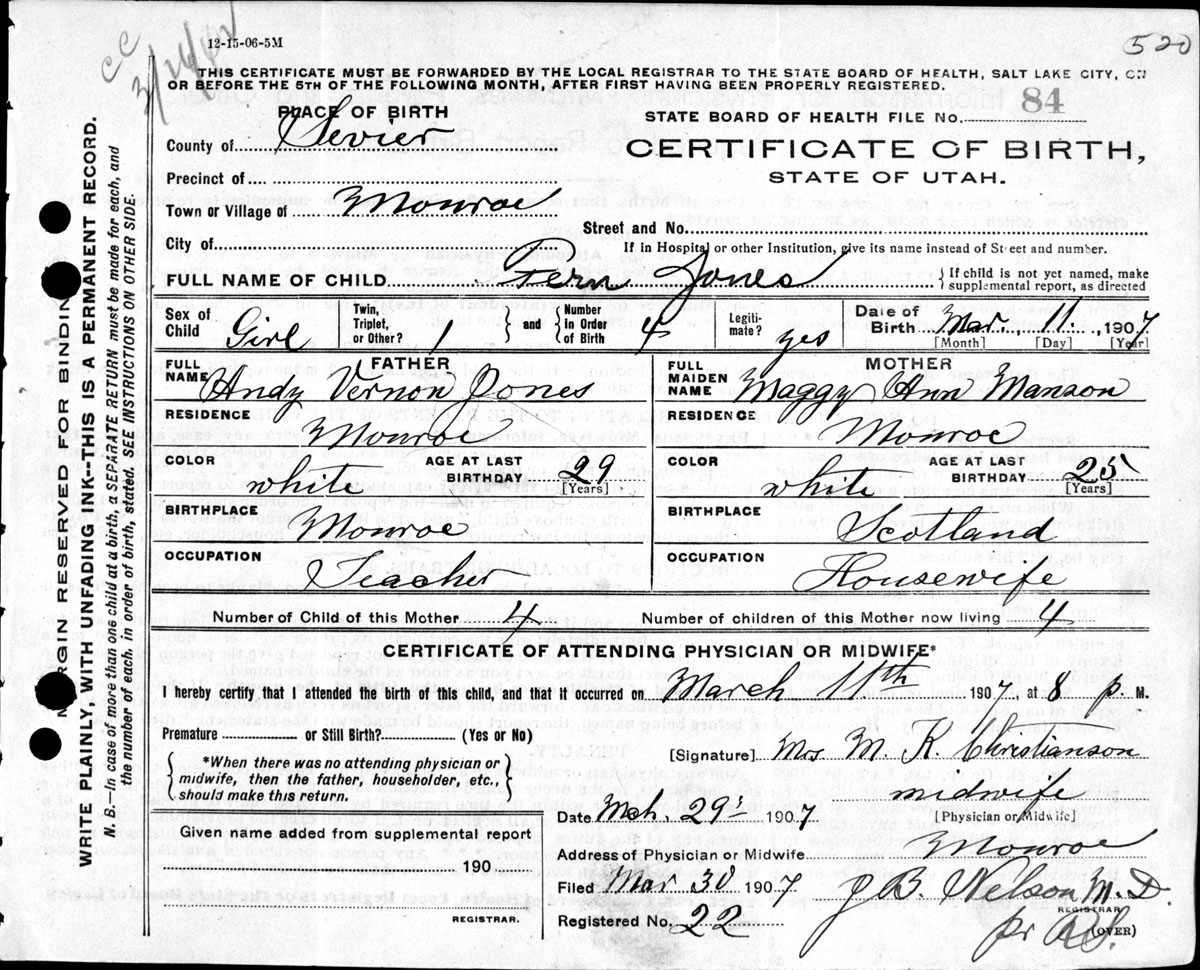 520
12-15-06-5M
CC
3/26/42
THIS CERTIFICATE MUST BE FORWARDED BY THE LOCAL REGISTRAR TO THE STATE BOARD OF HEALTH, SALT LAKE CITY, ON
OR BEFORE THE 5TH OF THE FOLLOWING MONTH, AFTER FIRST HAVING BEEN PROPERLY REGISTERED.
PLACE OF BIRTH
STATE BOARD OF HEALTH FILE NO. 84
County of Sevier
CERTIFICATE OF BIRTH,
STATE OF UTAH.
Precinct of
Town or Village of Monroe
Street and No.
City of
If in Hospital or other Institution, give its name instead of Street and number.
FULL NAME OF CHILD Fern Jones { If child is not yet named, make
supplemental report, as directed
Sex of Child Girl
Twin, Triplet, or Other? 1 } and { Number In Order of Birth 4
Legiti-mate? yes
Date of Birth Mar. 11, 1907
[Month] [Day] [Year]
FATHER
FULL NAME Andy Vernon Jones
RESIDENCE
Monroe
COLOR white AGE AT LAST BIRTHDAY 29
[Years]
BIRTHPLACE
Monroe
OCCUPATION
Teacher
MOTHER
FULL MAIDEN NAME Maggy Ann Manson
RESIDENCE
Monroe
COLOR white AGE AT LAST BIRTHDAY 25
[Years]
BIRTHPLACE
Scotland
OCCUPATION
Housewife
Number of Child of this Mother 4 Number of children of this Mother now living 4
CERTIFICATE OF ATTENDING PHYSICIAN OR MIDWIFE*
I hereby certify that I attended the birth of this child, and that it occurred on March 11th 1907, at 8 p. M.
Premature or Still Birth? (Yes or No)
{ *When there was no attending physician or
midwife, then the father, householder, etc.,
should make this return. }
[Signature] Mrs M. K. Christianson
midwife
[Physician or Midwife]
Date Mch, 29' 1907
Given name added from supplemental report
190
REGISTRAR.
Address of Physician or Midwife Monroe
Filed Mar 30 1907 J B. Nelson M. D.
REGISTRAR
Registered No. 22 pr
(OVER)
MARGIN RESERVED FOR BINDING
WRITE PLAINLY, WITH UNFADING INK--THIS IS A PERMANENT RECORD.
N. B.—In case of more than one child at a birth, a SEPARATE RETURN must be made for each, and
the number of each, in order of birth, stated. SEE INSTRUCTIONS ON OTHER SIDE.